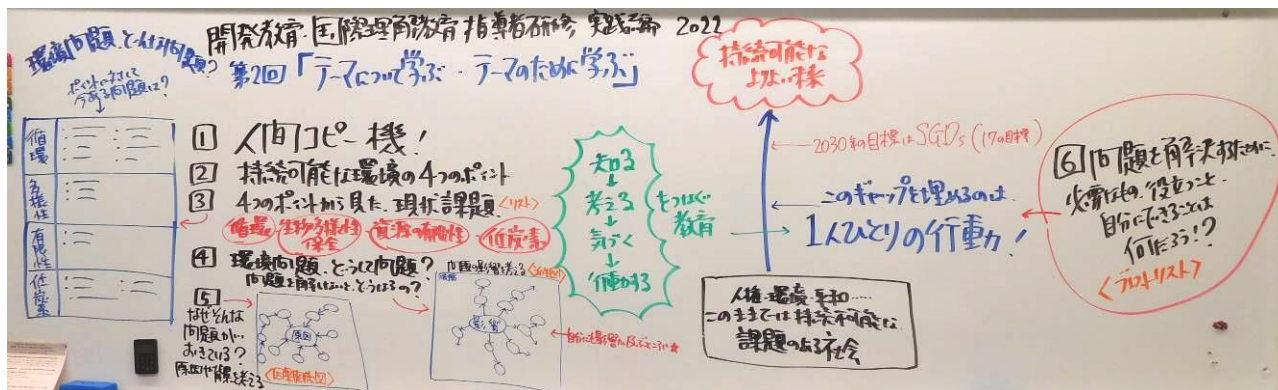 開発教育・国際理解教育 指導者研修 実践編 2022
第2回「テーマについて学ぶ・テーマのために学ぶ」
環境問題、どんな問題?
ポイントに対して
今ある問題は?
循環
多様性
有限性
低炭素
1 人間コピー機!
2 持続可能な環境の4つのポイント
3 4つのポイントから見た、現状課題<リスト>
循環 生物多様性 資源の有限性 低炭素
保全
4 環境問題、どうして問題?
問題を解決しないと、どうなるの?
5
なぜそんな
問題が…
おきている?
原因や背景を考える
原因
問題の影響を考える
影響
自分にも影響が
知る
↓
考える
↓
気づく
↓
行動する
をつなぐ
教育
持続可能な
よりよい未来
2030年の目標はSGDs(17の目標)
このギャップを埋めるのは、
1人ひとりの行動!
人権・環境・平和……
このままでは持続不可能な
課題のある社会
6 問題を解決するために、
必要なもの、役立つこと、
自分にできることは
何だろう!?